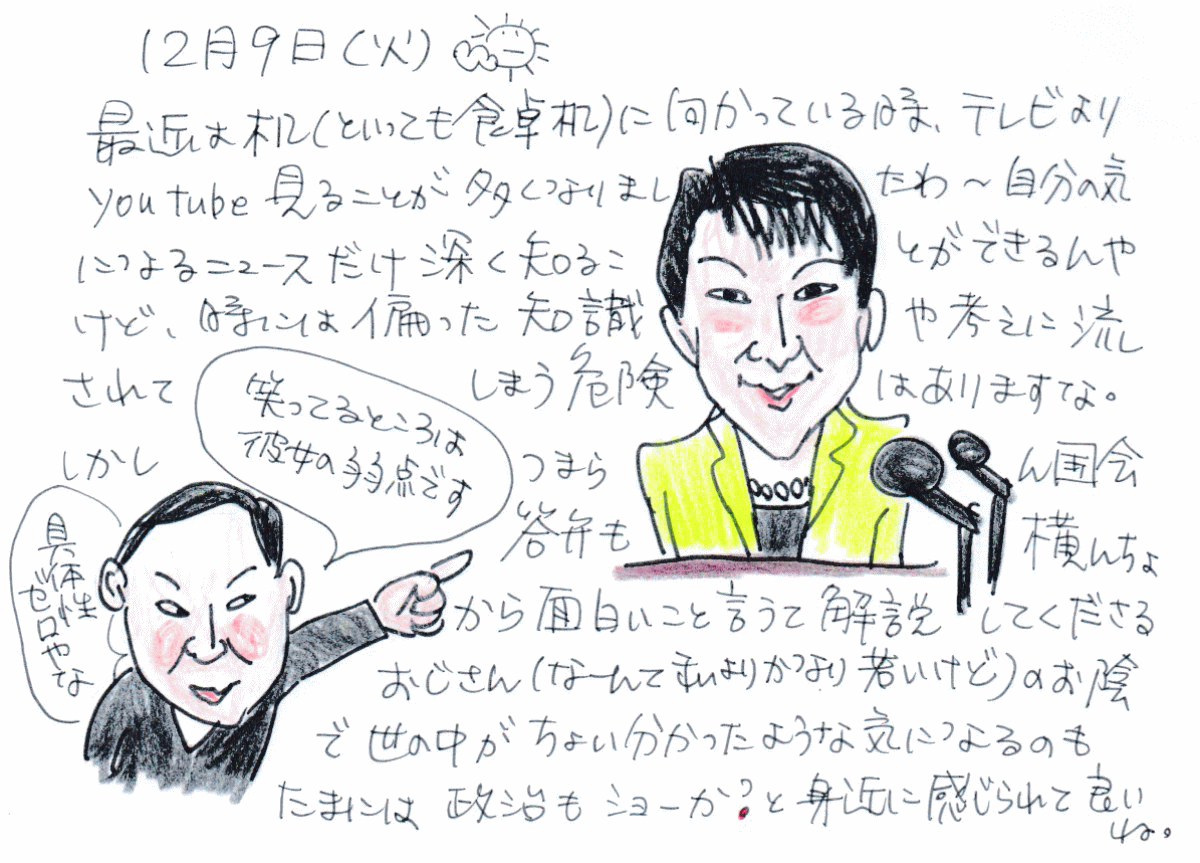 12月9日(火)
最近は机(といっても食卓机)に向かっている時、テレビより
youtube見ることが多くなりましたわ～自分の気
になるニュースだけ深く知ることができるんや
けど、時には偏った知識や考えに流
されてしまう危険はありますてな。
しかしつまらん国会
答弁も横んちょ
から面白いこと言うて解説してくださる
おじさん(なーんて私よりかなり若いけど)のお陰
で世の中がちょい分かったような気になるのも
たまには政治もショーか?と身近に感じられて良い
ね。
笑ってるところは
彼女の弱点です
具体性
ゼロやな